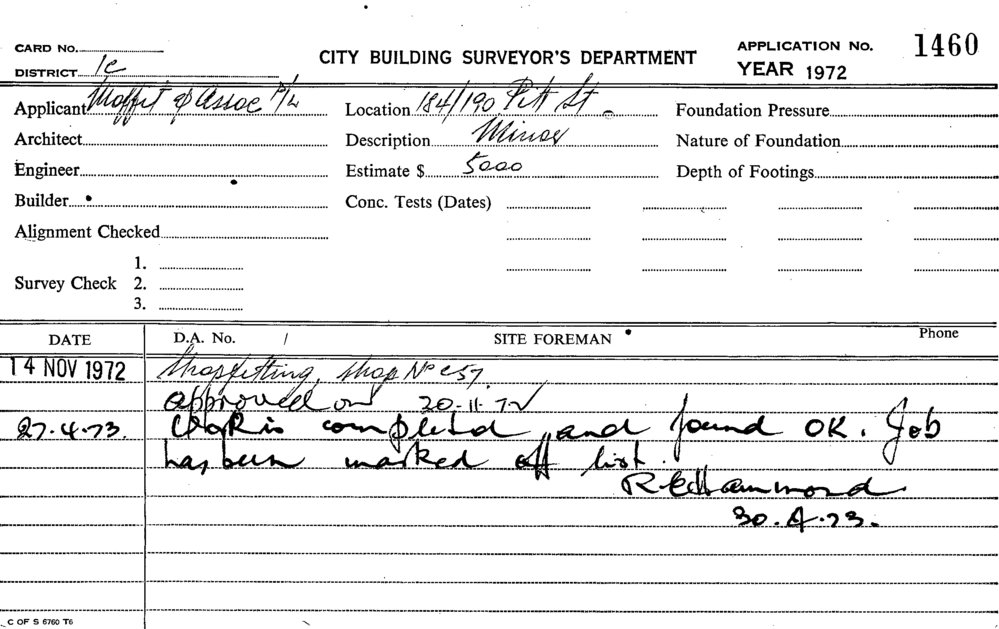 CARD No.
DISTRICT 1c
CITY BUILDING SURVEYOR'S DEPARTMENT
APPLICATION No. 1460
YEAR 1972
Applicant Moffit & Assoc P/L
Location 184/190 Pitt St.
Foundation Pressure
Architect
Description Minor
Nature of Foundation
Engineer
Estimate $ 5000
Depth of Footings
Builder
Conc. Tests (Dates)
Alignment Checked
Survey Check 1.
2.
3.
DATE D.A. No. / SITE FOREMAN Phone
14 NOV 1972 Shopfitting, shop No c57.
approved on 20-11-72
27.4.73. Work is completed and found OK. Job
has been marked off list.
R Hammond.
30.4.73.
C OF S 6760 T6